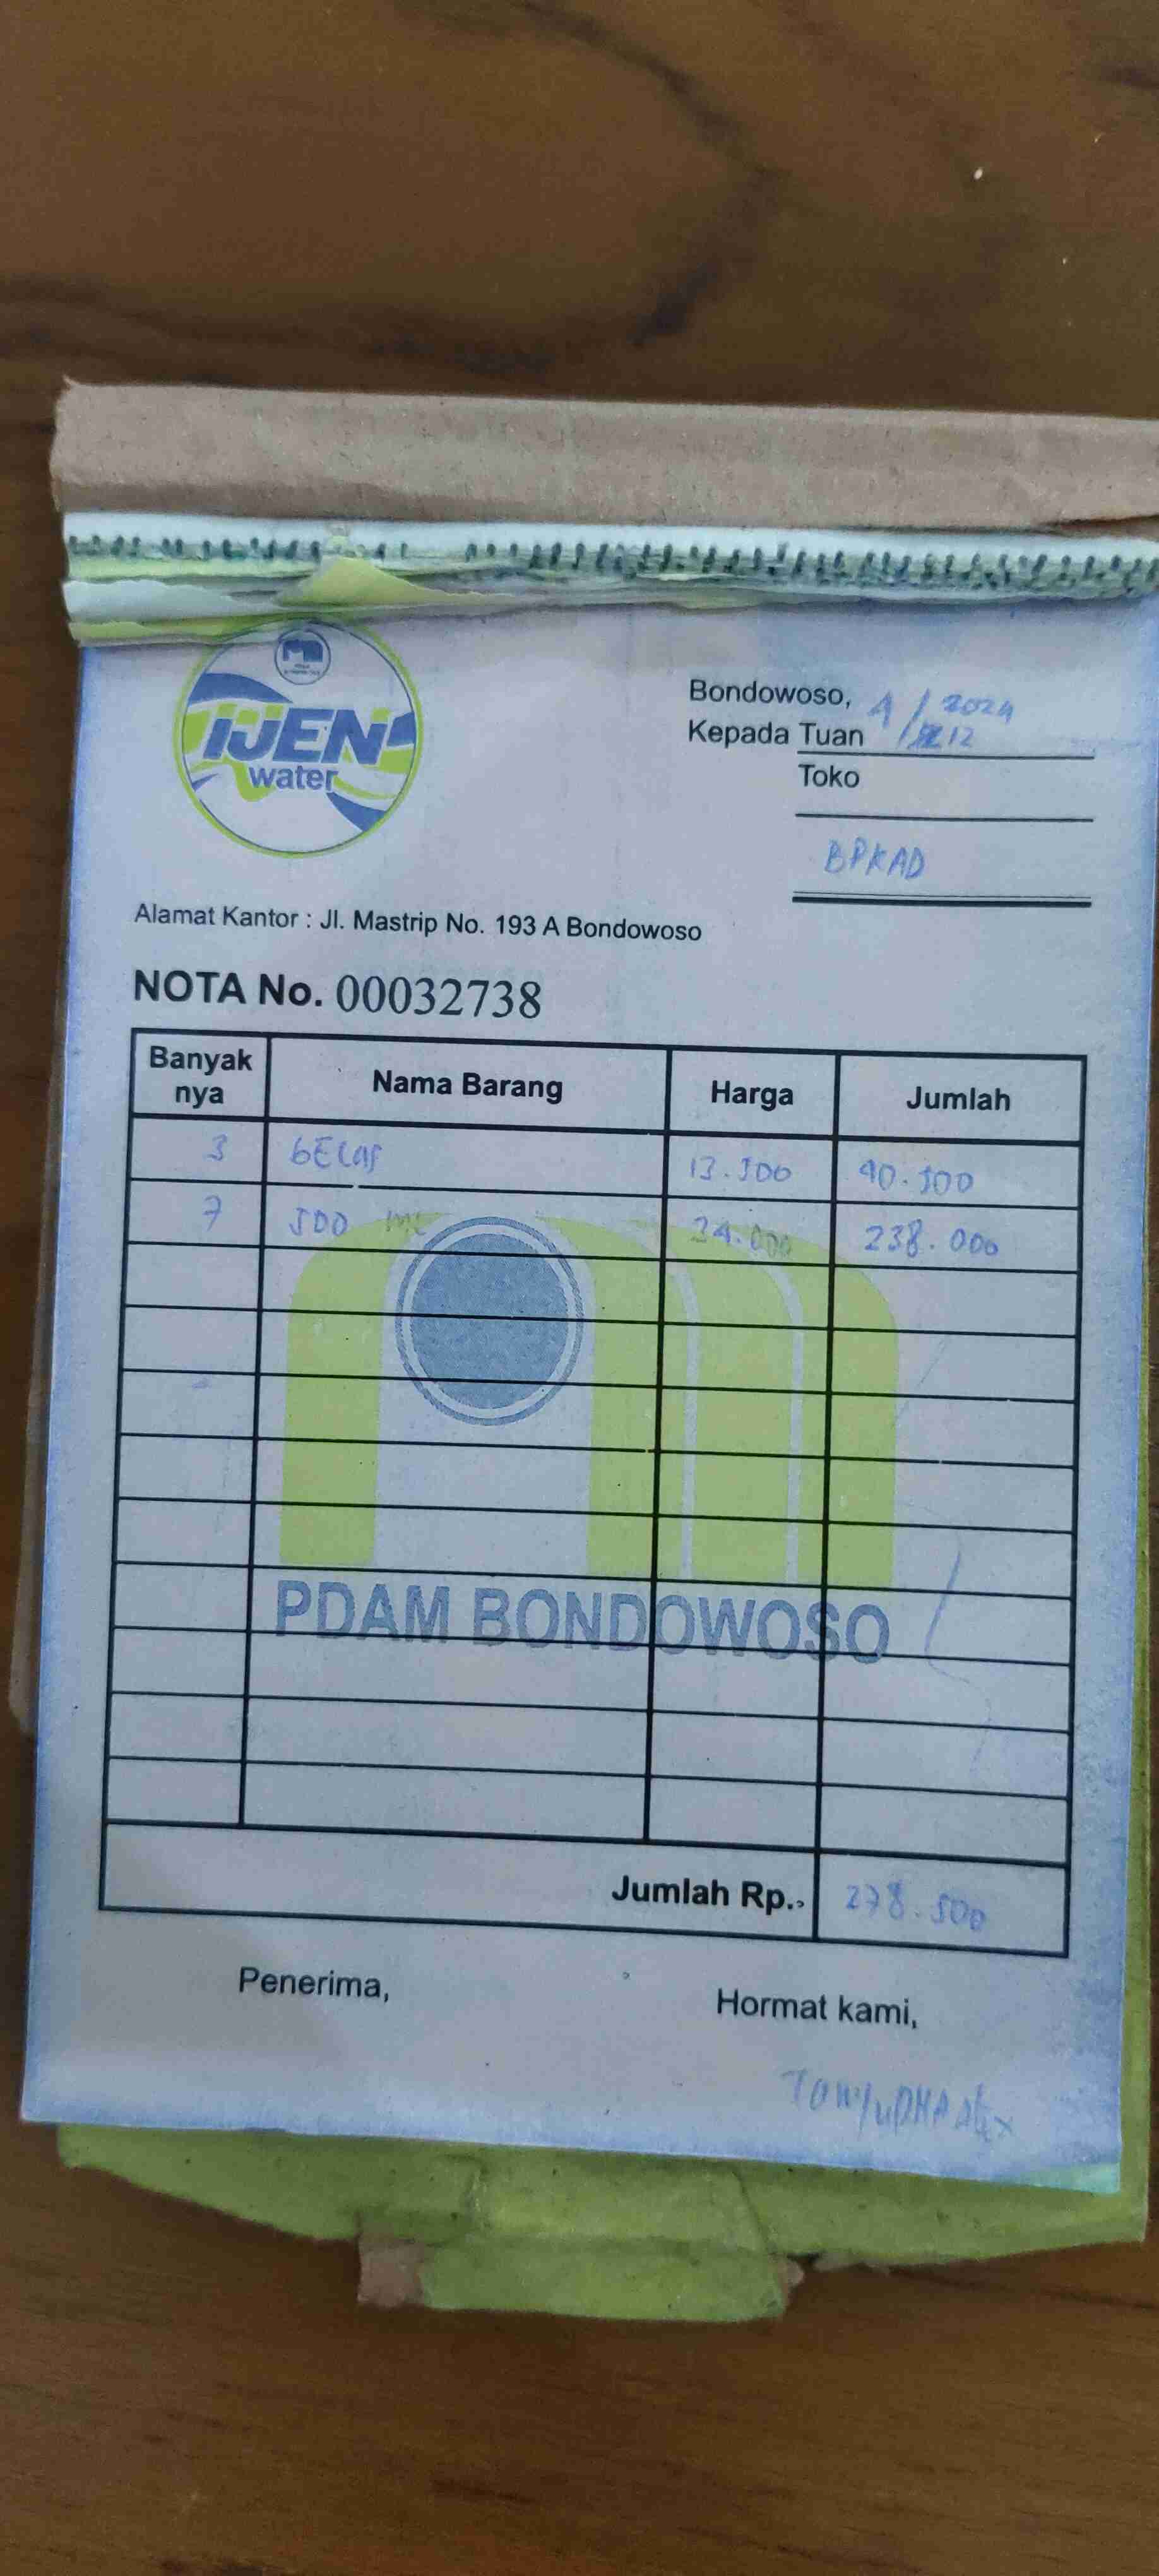 IJEN
water
Bondowoso, 4/12 2024
Kepada Tuan
Toko
BPKAD
Alamat Kantor : Jl. Mastrip No. 193 A Bondowoso
NOTA No. 00032738
Banyak nya Nama Barang Harga Jumlah
3 GELAS 13.500 40.500
7 500 ML 34.000 238.000
PDAM BONDOWOSO
Jumlah Rp.. 278.500
Penerima, Hormat kami,